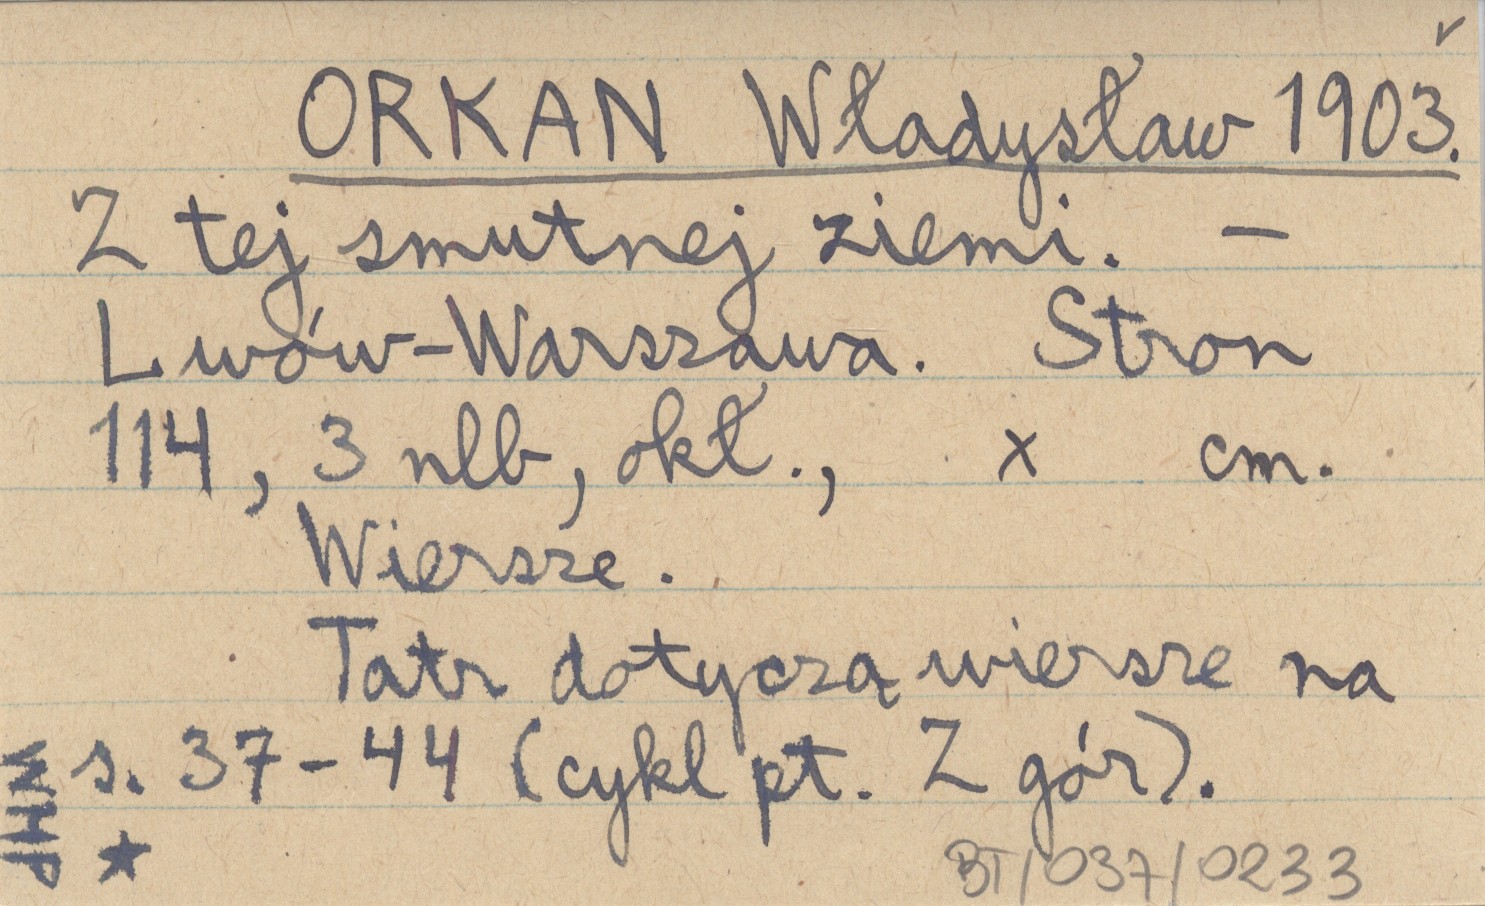 ORKAN Władysław 1903.
Z tej smutnej ziemi. –
Lwów-Warszawa. Stron
114, 3 nlb, okł., x cm.
Wiersze.
Tatr dotyczą wiersze na
s. 37-44 (cykl pt. Z gór).
WHP
BT/037/0233